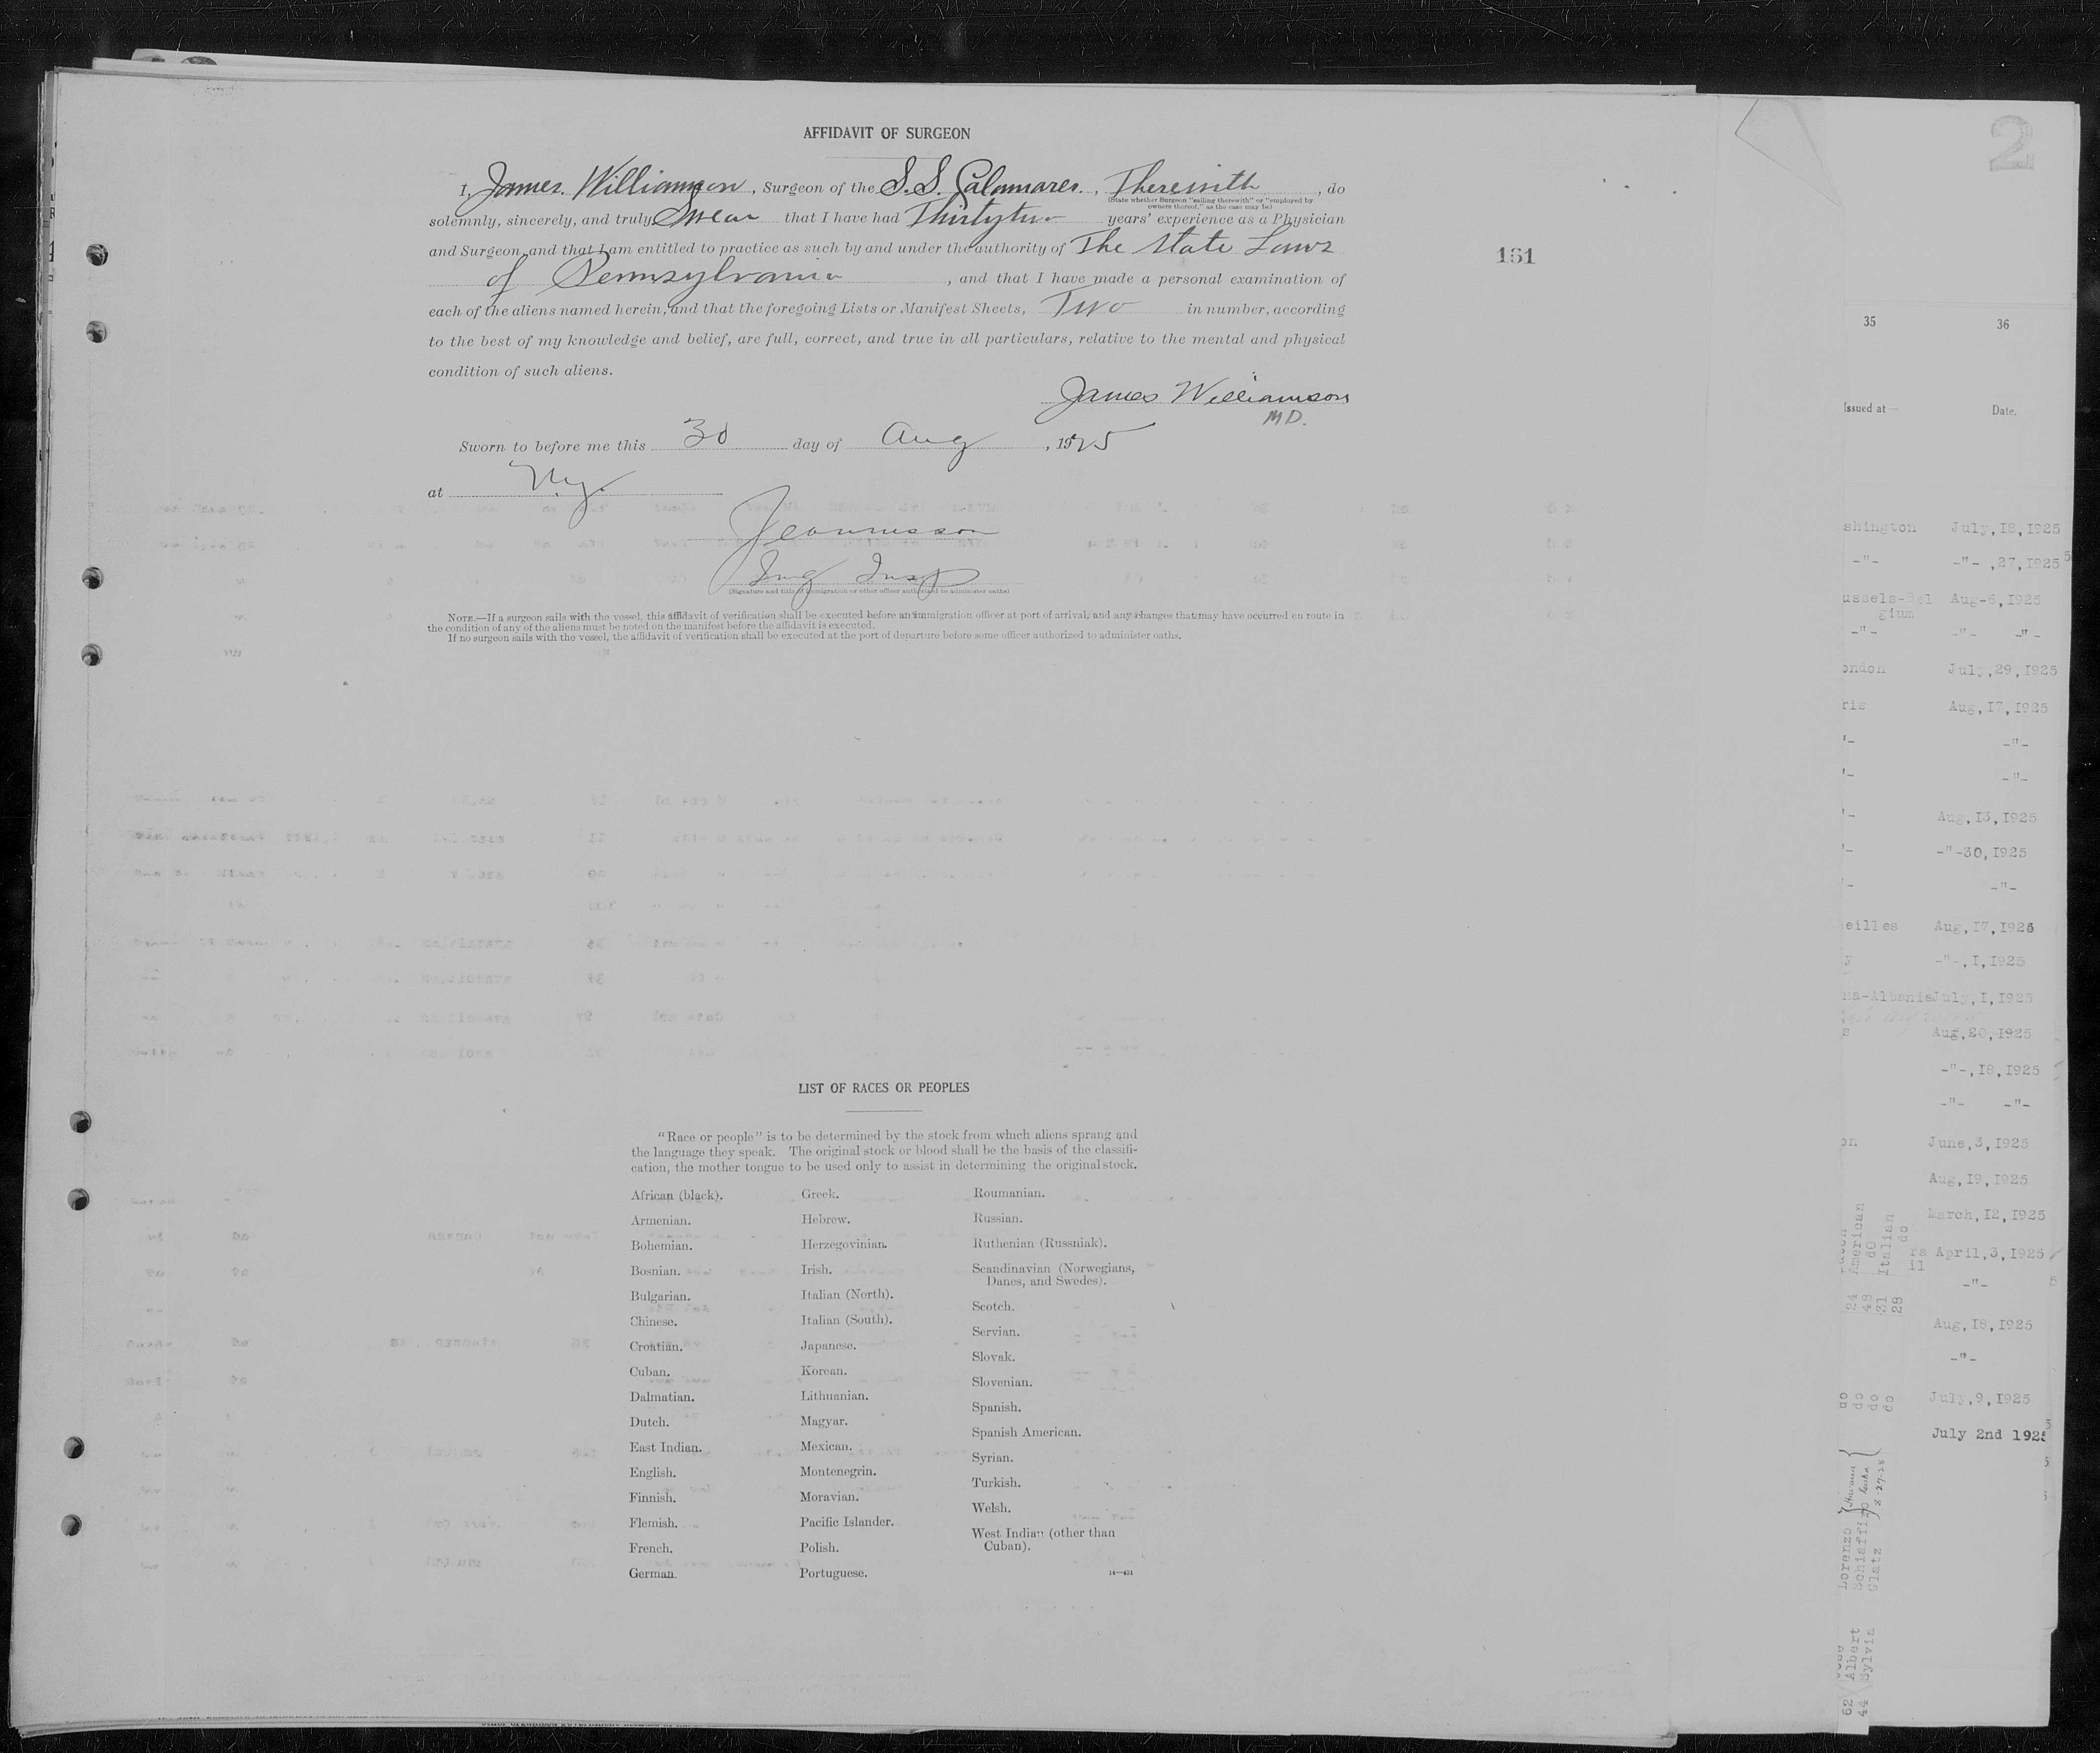 AFFIDAVIT OF SURGEON
I, James Williamson, Surgeon of the S.S. Calamares, Therewith, do
(State whether Surgeon "sailing therewith" or "employed by
owners thereof," as the case may be)
solemnly, sincerely, and truly Swear that I have had Thirtytwo years' experience as a Physician
and Surgeon, and that I am entitled to practice as such by and under the authority of The State Laws
of Pennsylvania, and that I have made a personal examination of
each of the aliens named herein, and that the foregoing Lists or Manifest Sheets, Two in number, according
to the best of my knowledge and belief, are full, correct, and true in all particulars, relative to the mental and physical
condition of such aliens.
James Williamson
M D.
Sworn to before me this 30 day of Aug, 1925
at N.y.
Img Insp
(Signature and title of immigration or other officer authorized to administer oaths)
NOTE.—If a surgeon sails with the vessel, this affidavit of verification shall be executed before an immigration officer at port of arrival, and any changes that may have occurred en route in
the condition of any of the aliens must be noted on the manifest before the affidavit is executed.
If no surgeon sails with the vessel, the affidavit of verification shall be executed at the port of departure before some officer authorized to administer oaths.
161
LIST OF RACES OR PEOPLES
"Race or people" is to be determined by the stock from which aliens sprang and
the language they speak. The original stock or blood shall be the basis of the classifi-
cation, the mother tongue to be used only to assist in determining the original stock.
African (black).
Armenian.
Bohemian.
Bosnian.
Bulgarian.
Chinese.
Croatian.
Cuban.
Dalmatian.
Dutch.
East Indian.
English.
Finnish.
Flemish.
French.
German.
Greek.
Hebrew.
Herzegovinian.
Irish.
Italian (North).
Italian (South).
Japanese.
Korean.
Lithuanian.
Magyar.
Mexican.
Montenegrin.
Moravian.
Pacific Islander.
Polish.
Portuguese.
Roumanian.
Russian.
Ruthenian (Russniak).
Scandinavian (Norwegians,
Danes, and Swedes).
Scotch.
Servian.
Slovak.
Slovenian.
Spanish.
Spanish American.
Syrian.
Turkish.
Welsh.
West Indian (other than
Cuban).
14—431
2
35 36
Issued at— Date.
shington July,18,1925
-"- -"- ,27,1925
ussels-Bel Aug-6,1925
gium
-"- -"- -"-
ondon July,29,1925
ris Aug,17,1925
"- -"-
"- -"-
Aug,13,1925
-"-30,1925
-"-
eilles Aug,17,1925
-"-,1,1925
na-Albania July,1,1925
s Aug,20,1925
-"-,18,1925
-"- -"-
on June,3,1925
Aug,19,1925
March,12,1925
rs April,3,1925
il
-"-
Aug,18,1925
-"-
July,9,1925
July 2nd 192
24 American
48 do
31 Italian
28 do
do
do
do
do
Lorenzo
Schiaffino
Glatz
Havana
Cuba
8-27-25
62 Albert
44 Sylvia